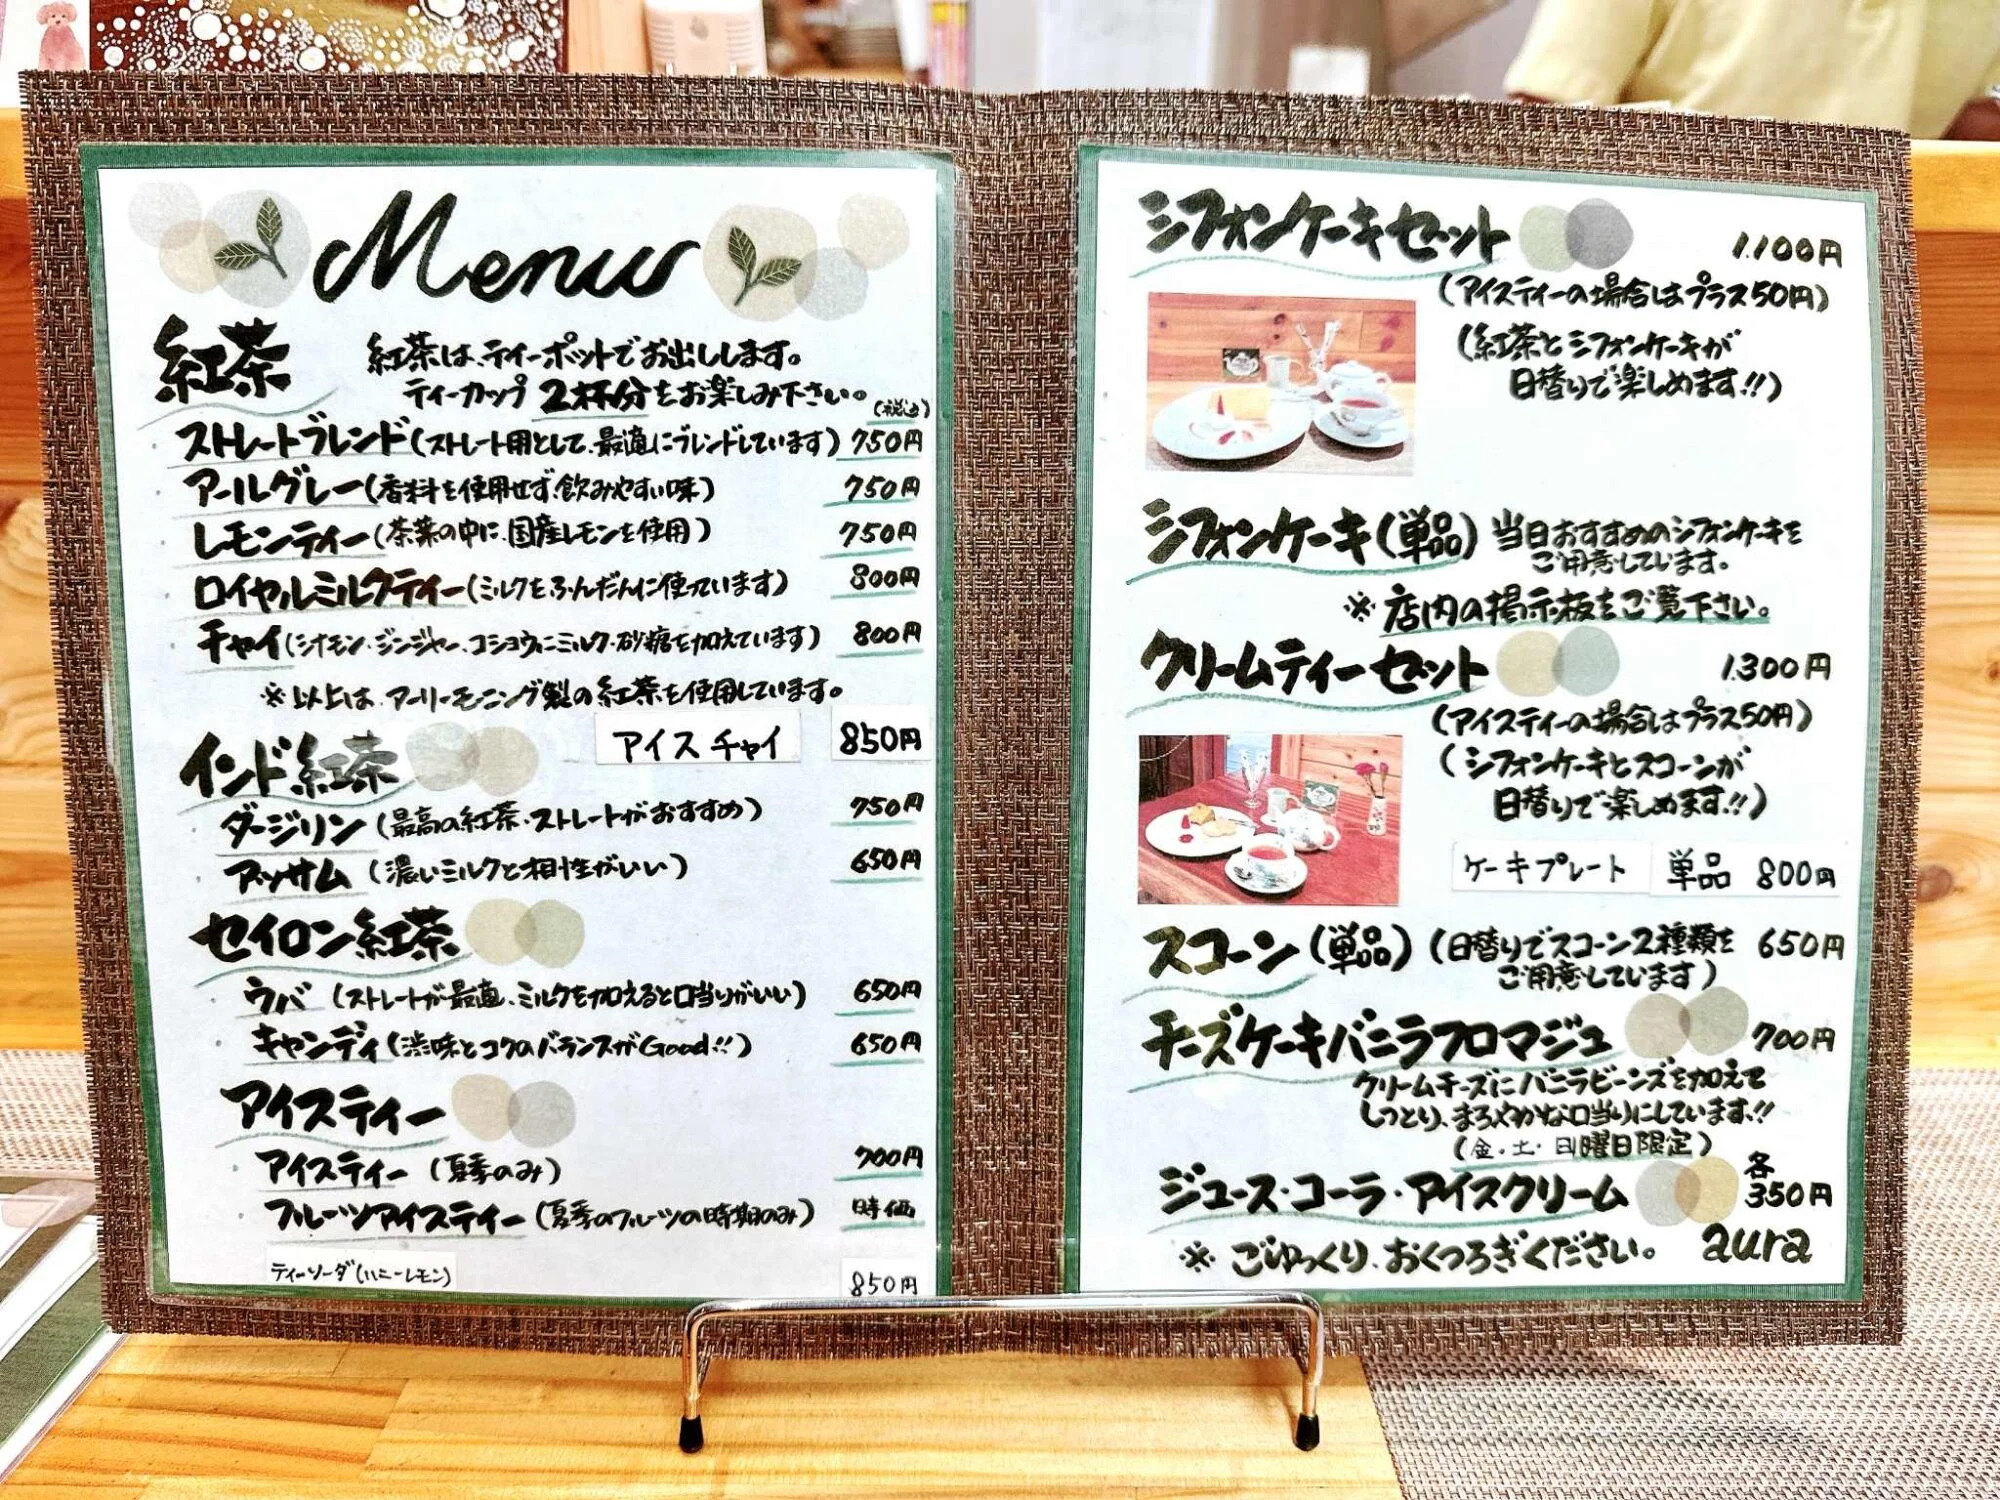 Menu
紅茶
紅茶は、ティーポットでお出しします。
ティーカップ 2杯分をお楽しみ下さい。
(税込)
ストレートブレンド(ストレート用として、最適にブレンドしています) 750円
アールグレー(香料を使用せず、飲みやすい味) 750円
レモンティー(茶葉の中に、国産レモンを使用) 750円
ロイヤルミルクティー(ミルクをふんだんに使っています) 800円
チャイ(シナモン・ジンジャー、コショウにミルク・砂糖を加えています) 800円
※以上は、アーリーモーニング製の紅茶を使用しています。
アイスチャイ 850円
インド紅茶
ダージリン(最高の紅茶・ストレートがおすすめ) 750円
アッサム(濃いミルクと相性がいい) 650円
セイロン紅茶
ウバ(ストレートが最適、ミルクを加えると口当りがいい) 650円
キャンディ(渋味とコクのバランスがGood!!) 650円
アイスティー
アイスティー(夏季のみ) 700円
フルーツアイスティー(夏季のフルーツの時期のみ) 時価
ティーソーダ(ハニーレモン) 850円
シフォンケーキセット 1.100円
(アイスティーの場合はプラス50円)
(紅茶とシフォンケーキが
日替りで楽しめます!!)
シフォンケーキ(単品) 当日おすすめのシフォンケーキを
ご用意しています。
※店内の掲示板をご覧下さい。
クリームティーセット 1.300円
(アイスティーの場合はプラス50円)
(シフォンケーキとスコーンが
日替りで楽しめます!!)
ケーキプレート 単品 800円
スコーン(単品)(日替りでスコーン2種類を 650円
ご用意しています)
チーズケーキバニラフロマジュ 700円
クリームチーズにバニラビーンズを加えて
しっとり、まろやかな口当りにしています!!
(金・土・日曜日限定)
ジュース・コーラ・アイスクリーム 各350円
※ごゆっくり、おくつろぎください。 aura